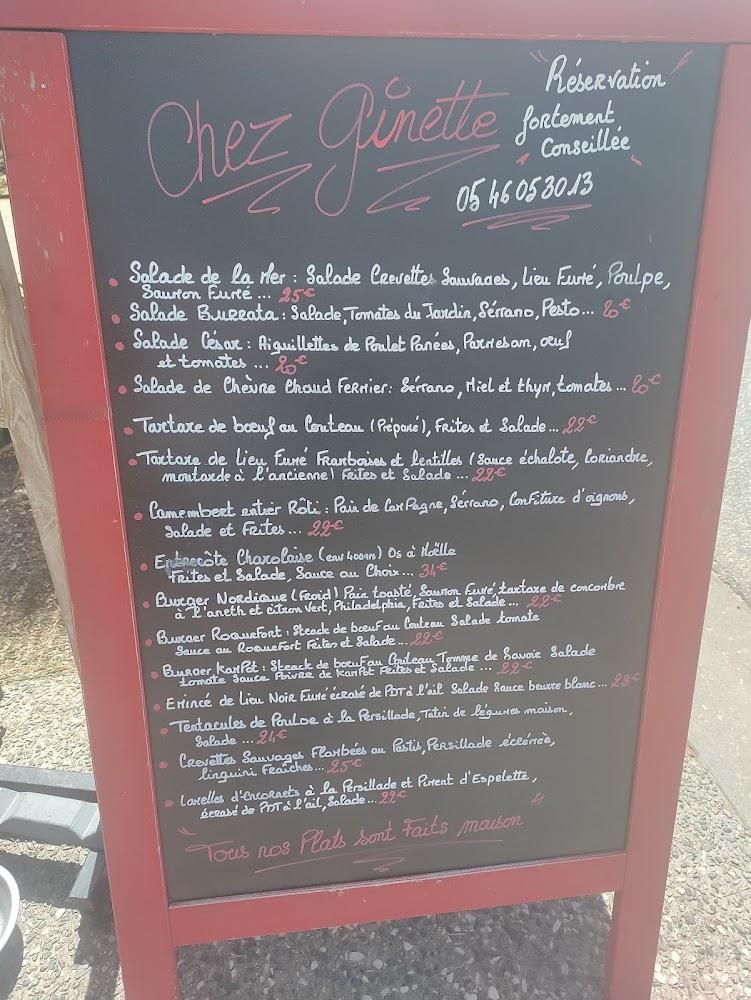 Chez Ginette
"Réservation"
fortement
Conseillée
05 46 05 30 13
Salade de la Mer : Salade Crevettes Sauvages, Lieu Fumé, Poulpe,
Saumon Fumé ... 25€
Salade Burrata : Salade, Tomates du Jardin, Sérrano, Pesto... 20€
Salade César : Aiguillettes de Poulet Panées, Parmesan, œuf
et tomates ... 20€
Salade de Chèvre Chaud Fermier : Sérrano, Miel et thym, tomates ... 20€
Tartare de bœuf au Couteau (Préparé), Frites et Salade... 22€
Tartare de Lieu Fumé Framboises et lentilles (Sauce échalote, Coriandre,
moutarde à l'ancienne) Frites et Salade ... 22€
Camembert entier Rôti : Pain de Campagne, Sérrano, Confiture d'oignons,
Salade et Frites ... 22€
Entrecôte Charolaise (env 400gr) Os à Moëlle
Frites et Salade, Sauce au Choix... 34€
Burger Nordique (Froid) Pain toasté, Saumon Fumé, tartare de concombre
à l'aneth et citron Vert, Philadelphia, Frites et Salade ... 22€
Burger Roquefort : Steack de bœuf au Couteau Salade tomate
Sauce au Roquefort Frites et Salade... 22€
Burger KamPot : Steack de bœuf au Couteau Tomme de Savoie Salade
tomate Sauce Poivre de KamPot Frites et Salade ... 22€
Emincé de Lieu Noir Fumé écrasé de PDT à l'ail Salade Sauce beurre blanc... 23€
Tentacules de Poulpe à la Persillade, Tatin de légumes maison,
Salade ... 24€
Crevettes Sauvages Flambées au Pastis, Persillade écrémée,
linguini Fraîches... 25€
Lamelles d'Encornets à la Persillade et Piment d'Espelette,
écrasé de PDT à l'ail, Salade... 22€
"Tous nos Plats sont Faits maison"